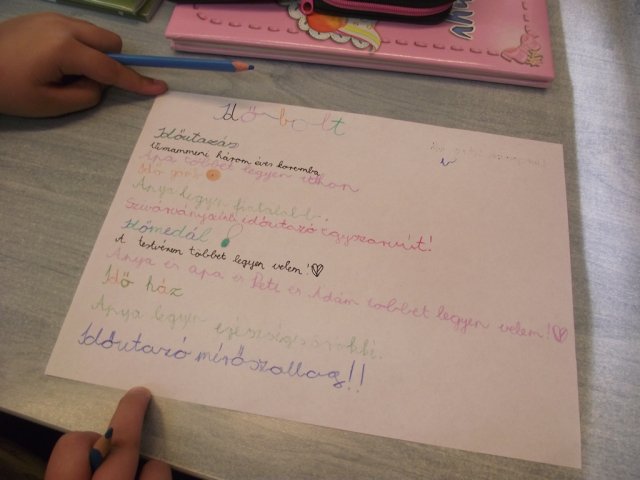 Időbolt
Időutazás
Visszamenni három éves koromba
Apa többet legyen itthon
Idő gomb
Anya legyen fiatalabb.
Szivárványszínű időutazó egyszarvút!
Időmedál
A testvérem többet legyen velem!
Anya és apa és Peti és Ádám többet legyen velem!
Idő ház
Anya legyen egészséges örökké.
Időutazó mérőszallag!!